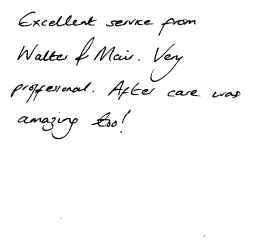 Excellent service from
Walter & Mair. Very
proffesional. After care was
amazing too!